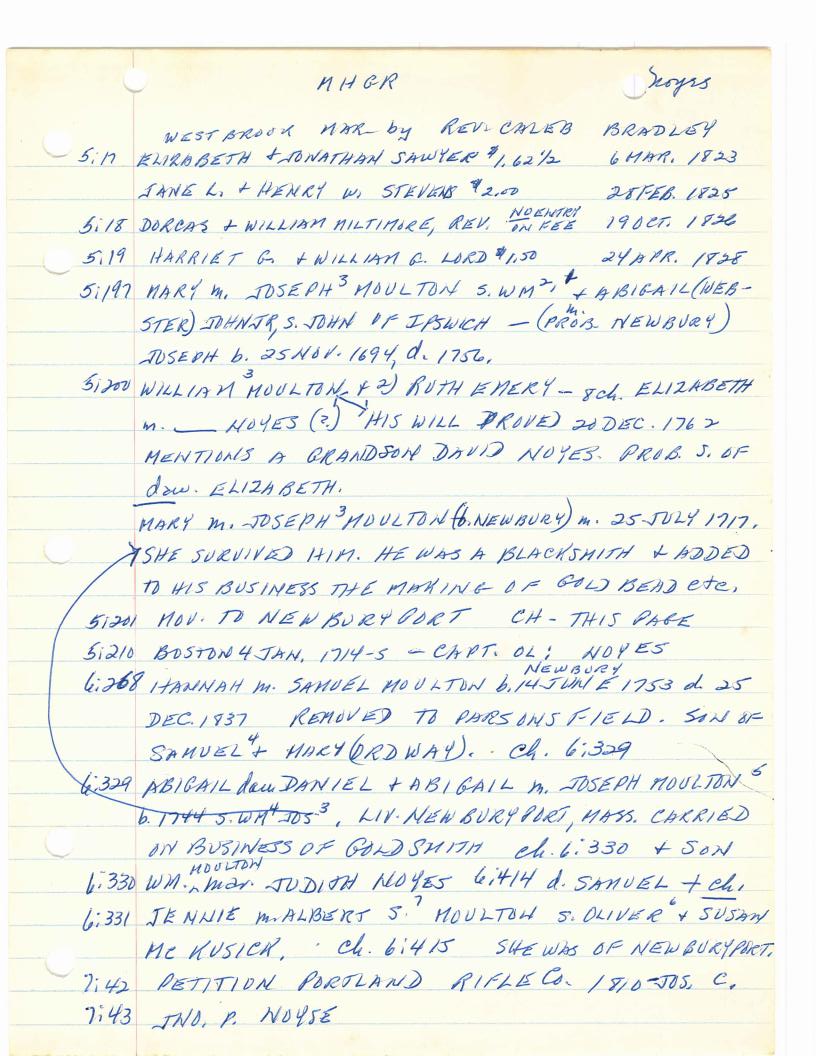 MHGR Noyes
WESTBROOK MAR by REV. CALEB BRADLEY
5:17 ELIZABETH + JONATHAN SAWYER $1.62½ 6 MAR. 1823
JANE L. + HENRY W. STEVENS $2.00 28 FEB. 1825
5:18 DORCAS + WILLIAM MILTIMORE, REV. NO ENTRY ON FEE 19 OCT. 1826
5:19 HARRIET G. + WILLIAM G. LORD $1.50 24 APR. 1828
5:197 MARY m. JOSEPH³ MOULTON S. WM², + ABIGAIL (WEB-
STER) JOHN JR, S. JOHN OF IPSWICH — (PROB. m. NEWBURY)
JOSEPH b. 25 NOV. 1694, d. 1756.
5:200 WILLIAM³ MOULTON + 2) RUTH EMERY — 8 ch. ELIZABETH
m. ___ NOYES (?) HIS WILL PROVED 20 DEC. 1762
MENTIONS A GRANDSON DAVID NOYES. PROB. S. OF
dau. ELIZABETH.
MARY m. JOSEPH³ MOULTON (b. NEWBURY) m. 25 JULY 1717.
SHE SURVIVED HIM. HE WAS A BLACKSMITH + ADDED
TO HIS BUSINESS THE MAKING OF GOLD BEAD etc.
5:201 MOV. TO NEWBURYPORT CH - THIS PAGE
5:210 BOSTON 4 JAN. 1714-5 — CAPT. OL: NOYES
6:268 HANNAH m. SAMUEL MOULTON b. NEWBURY 14 JUNE 1753 d. 25
DEC. 1837 REMOVED TO PARSONSFIELD. SON OF
SAMUEL⁴ + MARY (ORDWAY). ch. 6:329
6:329 ABIGAIL dau DANIEL + ABIGAIL m. JOSEPH MOULTON⁵
b. 1744 S. WM⁴ JOS³, LIV. NEWBURYPORT, MASS. CARRIED
ON BUSINESS OF GOLDSMITH ch. 6:330 + SON
6:330 WM. MOULTON mar. JUDITH NOYES 6:414 d. SAMUEL + ch.
6:331 JENNIE m. ALBERT S.⁷ MOULTON S. OLIVER⁶ + SUSAN
MC KUSICK. ch. 6:415 SHE WAS OF NEWBURYPORT.
7:42 PETITION PORTLAND RIFLE Co. 1810 - JOS. C.
7:43 JNO. P. NOYSE